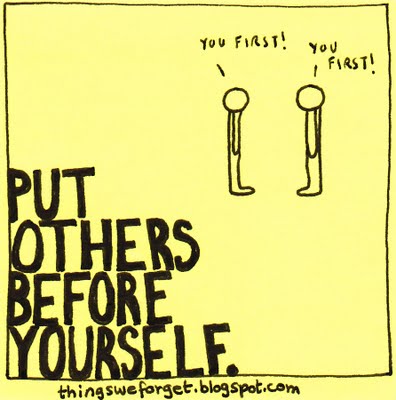 YOU FIRST!
YOU
FIRST!
PUT
OTHERS
BEFORE
YOURSELF.
thingsweforget.blogspot.com